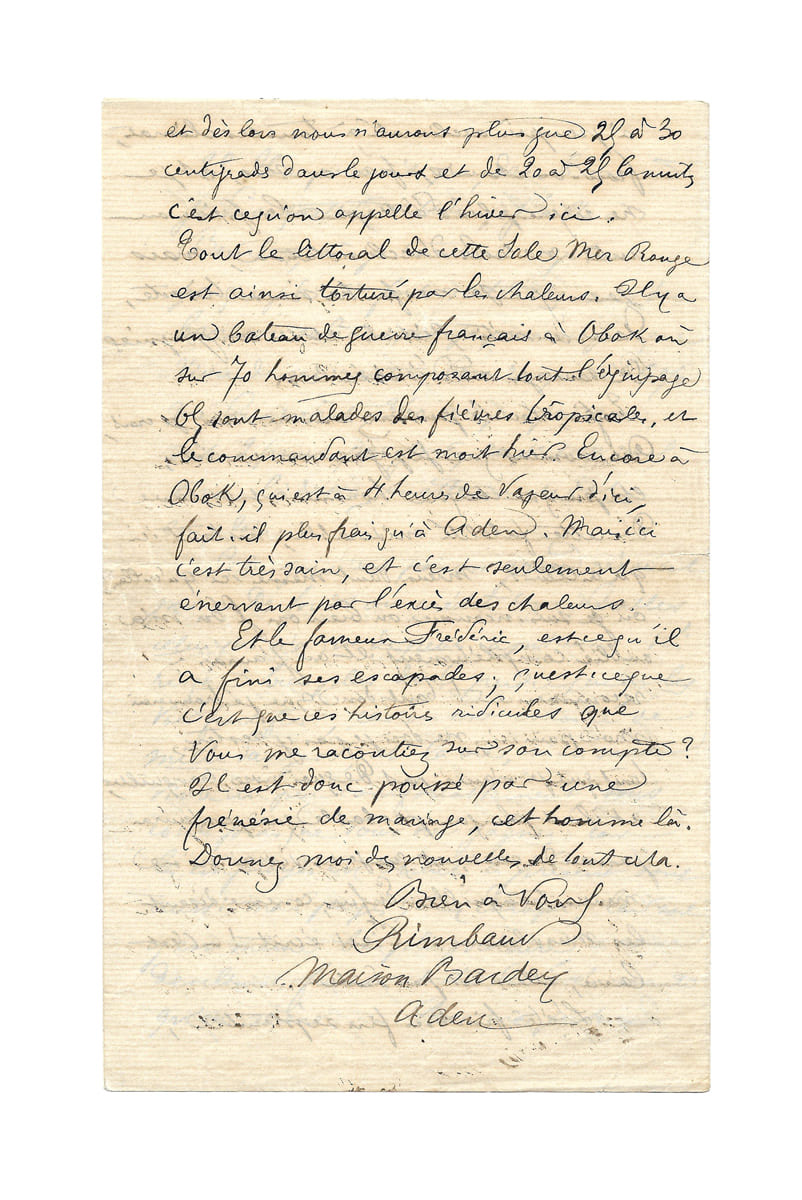 et dès lors nous n'aurons plus que 25 à 30
centigrads dans le jour et de 20 à 25 la nuit,
C'est ce qu'on appelle l'hiver ici.
Tout le littoral de cette sale Mer Rouge
est ainsi torturé par les chaleurs. Il y a
un bateau de guerre français à Obok où
sur 70 hommes composant tout l'équipage
65 sont malades des fièvres tropicales, et
le commandant est mort hier. Encore à
Obok, qui est à 4 heures de vapeur d'ici,
fait-il plus frais qu'à Aden. Mais ici
c'est très sain, et c'est seulement
énervant par l'excès des chaleurs.
Et le fameux Frédéric, est ce qu'il
a fini ses escapades; qu'est-ce que
c'est que ces histoires ridicules que
vous me racontiez sur son compte?
Il est donc poussé par une
frénésie de mariage, cet homme là.
Donnez moi des nouvelles de tout cela.
Bien à Vous.
Rimbaud
Maison Bardey
Aden